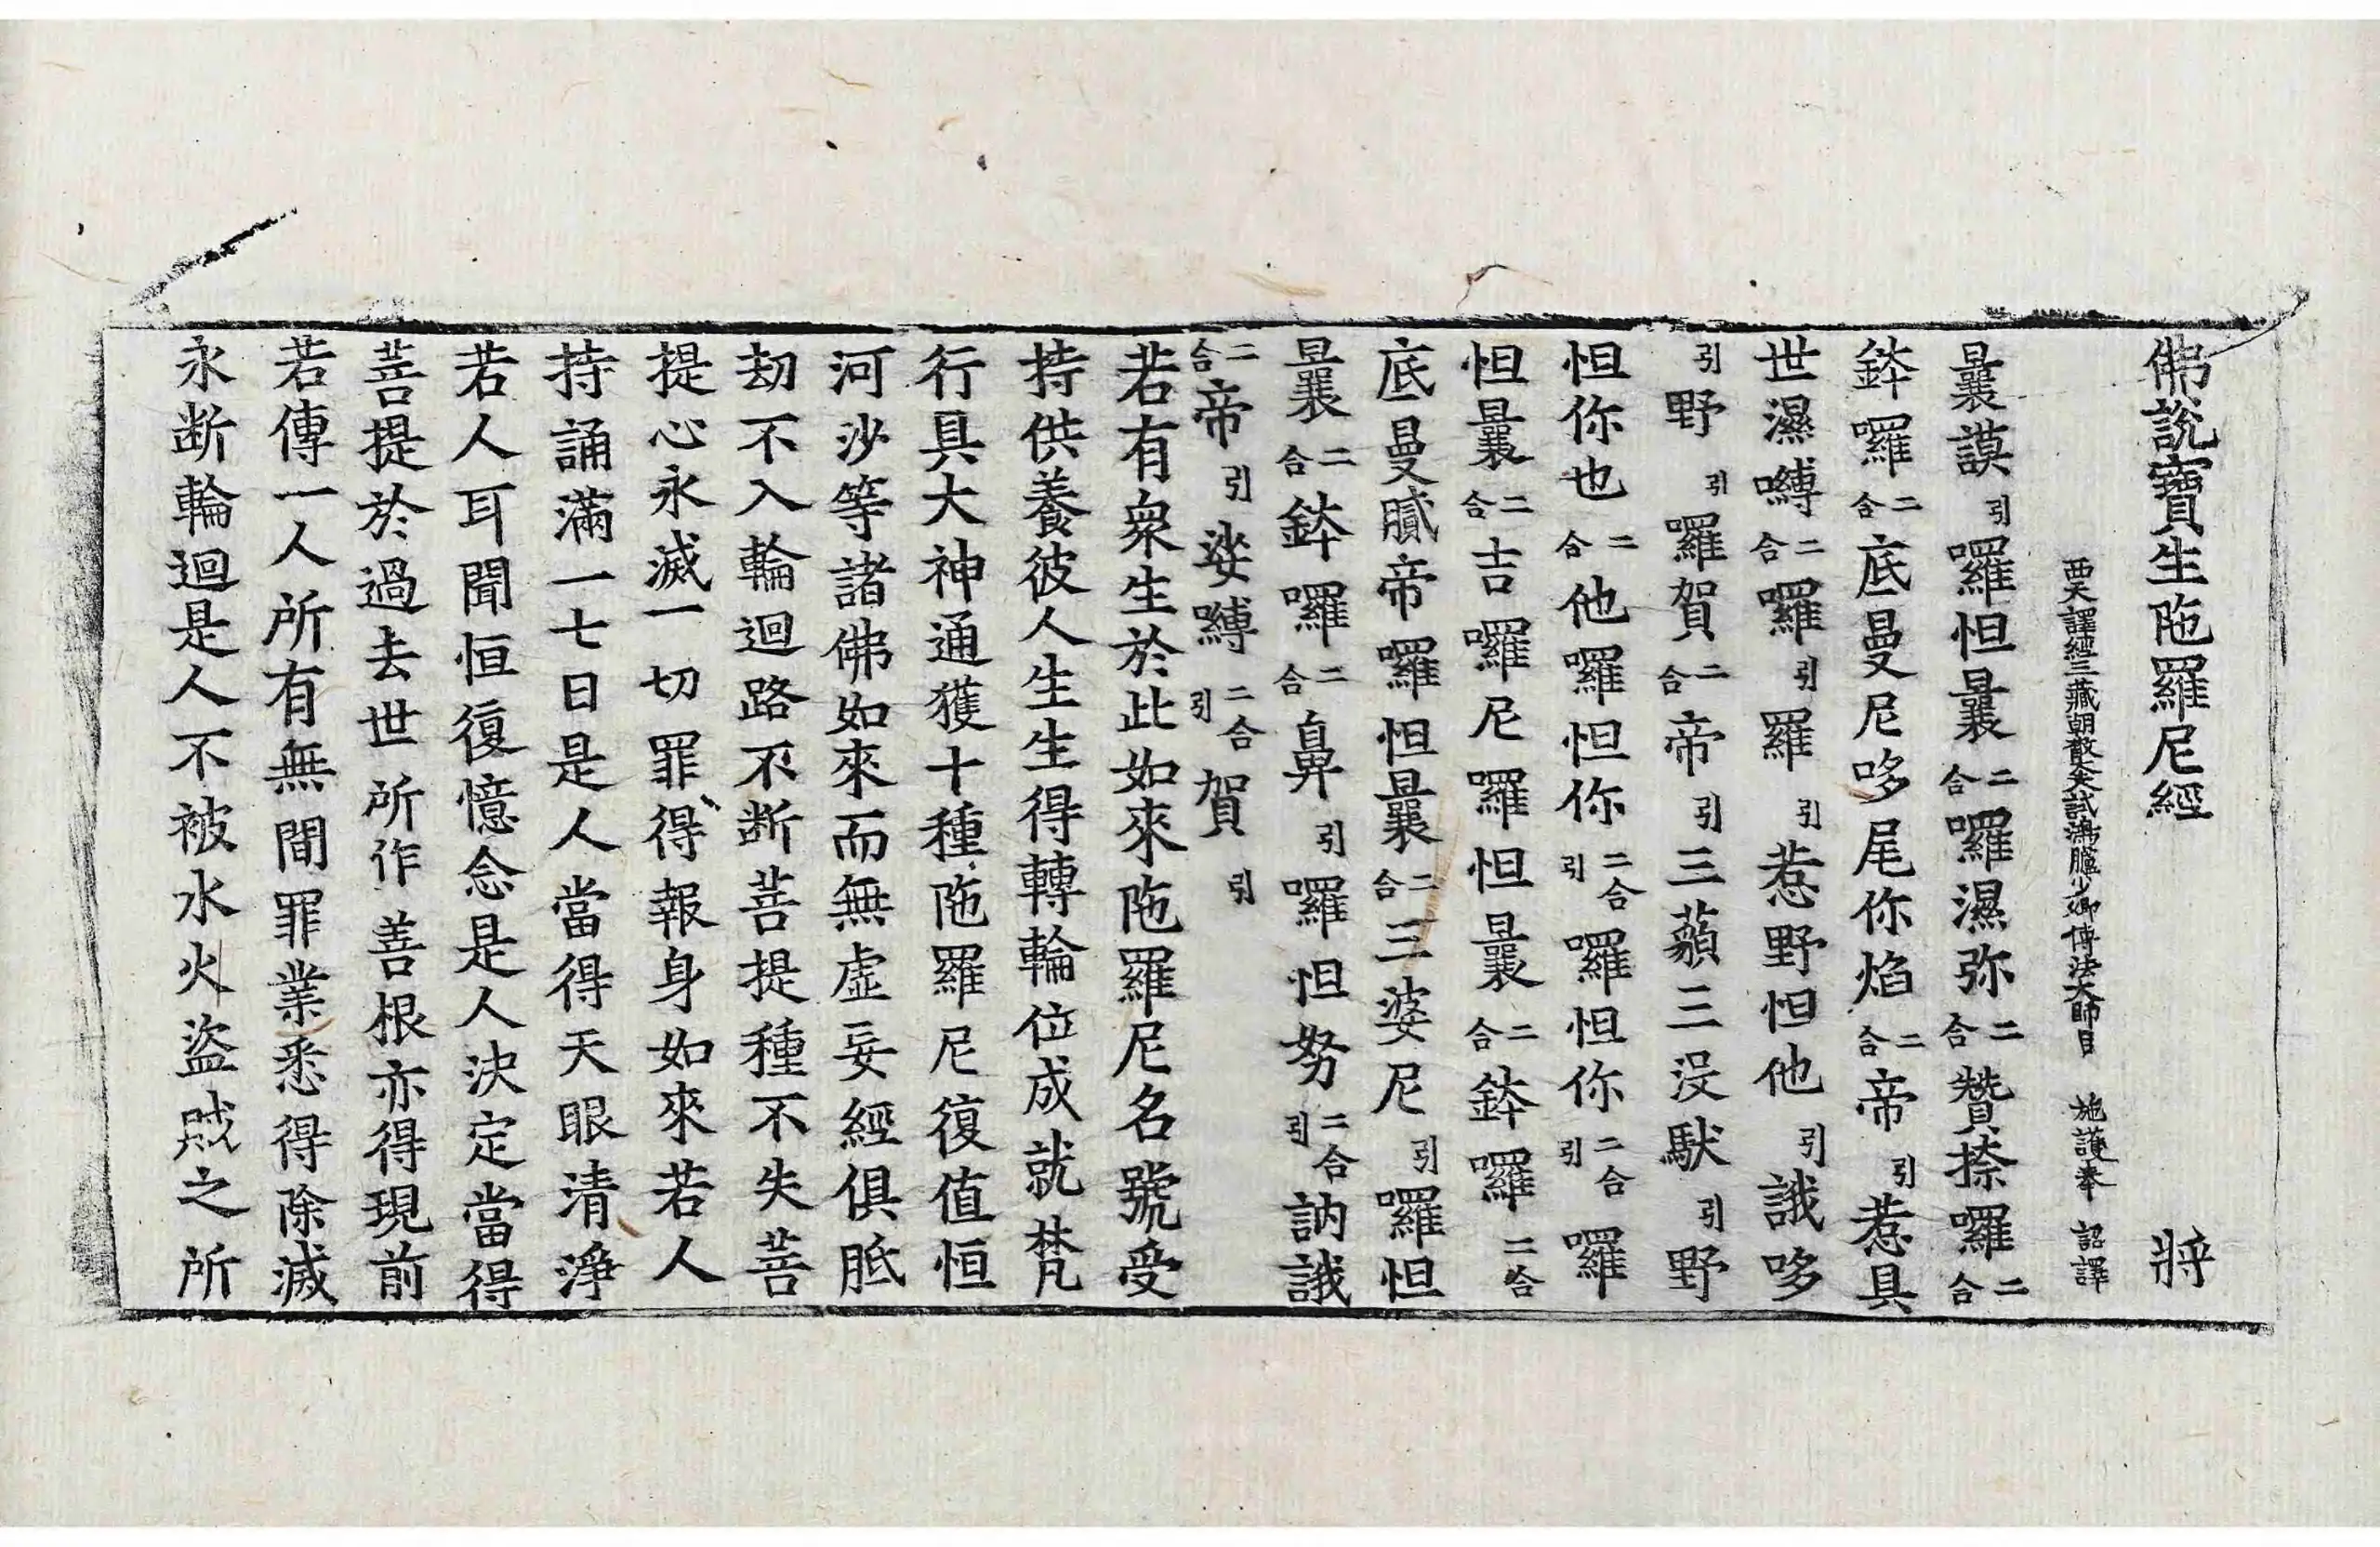 佛說寶生陁羅尼經 將
西天譯經三藏朝散大夫試鴻臚少卿傳法大師臣 施護奉 詔譯
曩謨引囉怛曩二合囉濕弥二合贊捺囉二合
鉢囉二合底曼尼哆尾你焰二合帝引惹具
世濕嚩二合囉引羅引惹野怛他引誐哆
引野引囉賀二合帝引三藐三沒馱引野
怛你也二合他囉怛你二合引囉怛你二合引囉
怛曩二合吉囉尼囉怛曩二合鉢囉二合
底曼膩帝囉怛曩二合三婆尼引囉怛
曩二合鉢囉二合鼻引囉怛努二合引訥誐
二合帝引娑嚩二合引賀引
若有衆生於此如來陁羅尼名號受
持供養彼人生生得轉輪位成就梵
行具大神通獲十種陁羅尼復值恒
河沙等諸佛如來而無虛妄經俱胝
劫不入輪迴路不断菩提種不失菩
提心永滅一切罪得報身如來若人
持誦滿一七日是人當得天眼清淨
若人耳聞恒復憶念是人決定當得
菩提於過去世所作善根亦得現前
若傳一人所有無閒罪業悉得除滅
永断輪迴是人不被水火盜賊之所